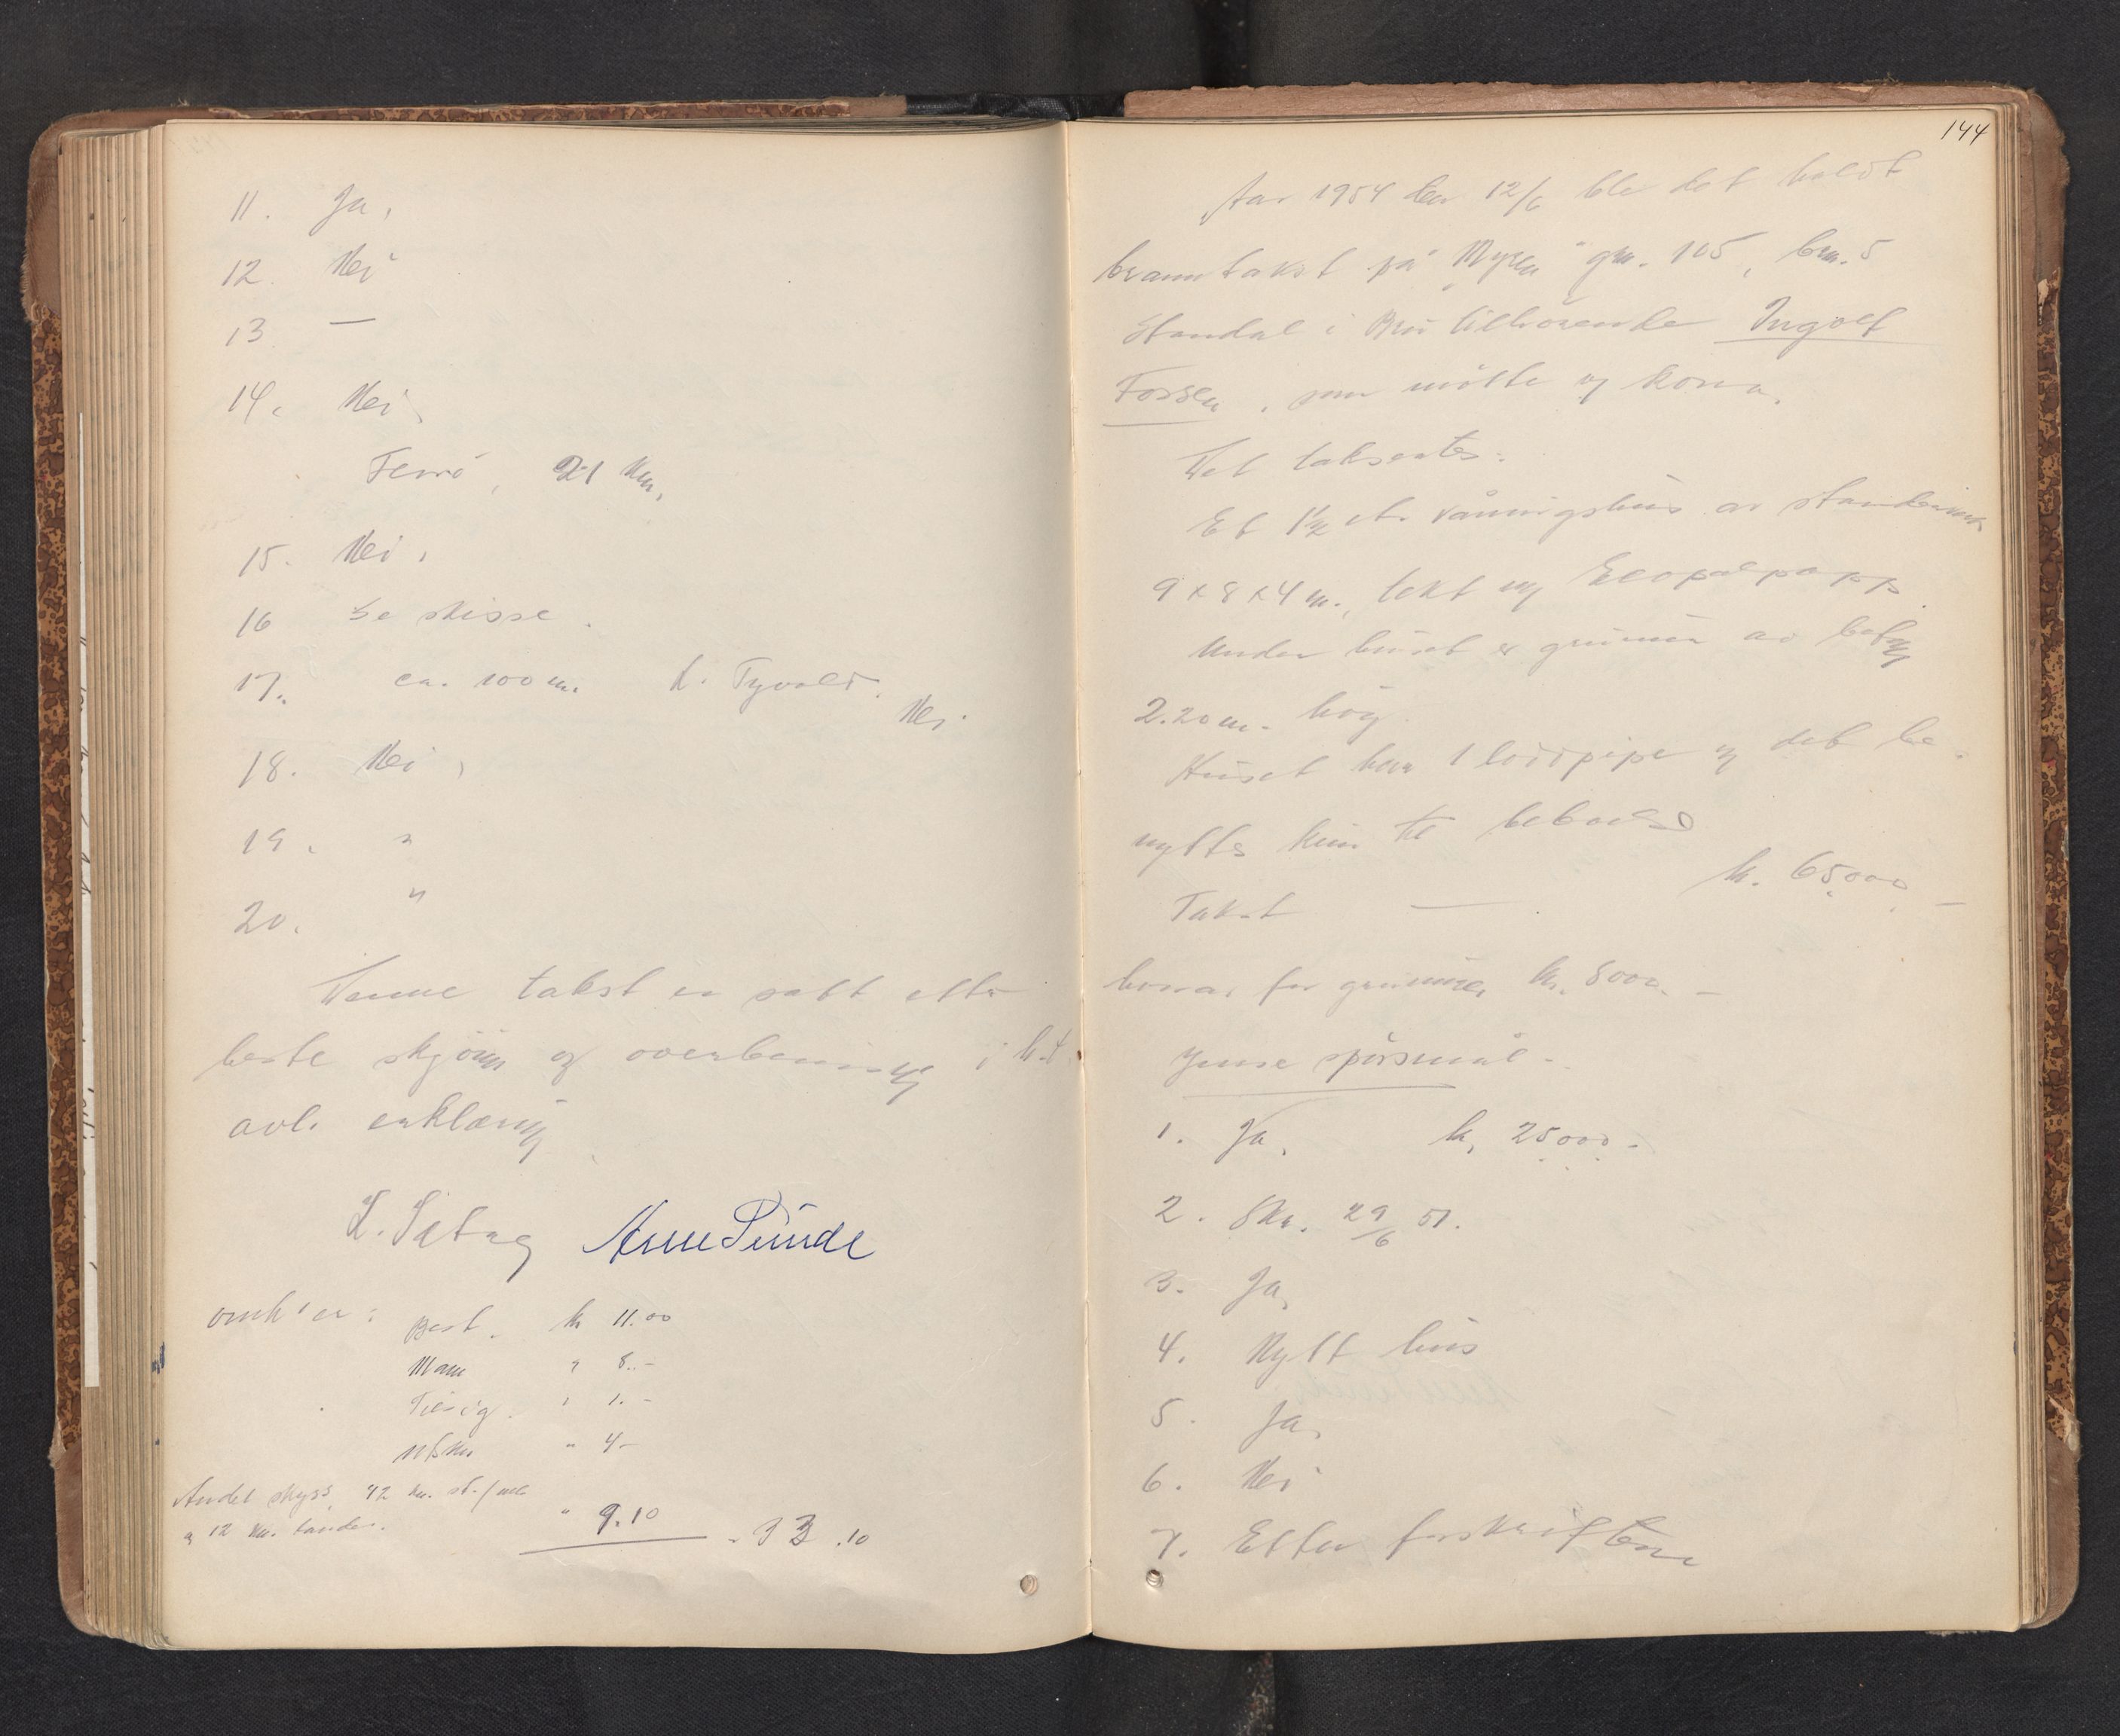 11. Ja,
12. Nei
13 —
14. Nei
Femö, 21 km,
15. Nei,
16 Se skisse.
17. ca. 100 m. L. Tyvold.
Nei.
18. Nei,
19. "
20. "
Denne takst er satt etter
beste skjönn og overbevisning i h.t.
avl. erklæring
L. Sætrey Arne Runde
omk'er: Best. kr 11.00
Mann " 8.-
" 1.-
" 4-
Andel skyss, 42 km.
a 12 km. landev. " 9.10 - 33.10
144
Aar 1954 den 12/6 ble det holdt
branntakst på "Myren" gn. 105, bn. 5
Standal i Bru tilhörende Ingolf
Fossen, som mötte og kona.
Det taksertes:
Et 1½ et. våningshus av standerverk
9 x 8 x 4 m., tekt m/ Ecopalpapp.
Under huset er grunnm av betong
2.20 m. höy.
Huset har 1 loddpipe og det be-
nyttes kun til beboelse
kr. 65.000.—
Takst —
herav for grunnmur kr. 8000.—
Ymse spörsmål.
1. Ja, kr. 25.000.-
2. Skr. 29/6 51.
3. Ja,
4. Nytt hus
5. Ja,
6. Nei
7. Etter forskriftene